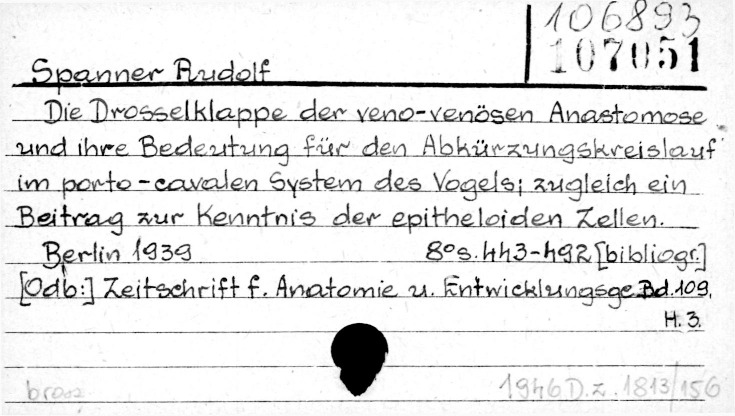 106893
107051
Spanner Rudolf
Die Drosselklappe der veno-venösen Anastomose
und ihre Bedeutung für den Abkürzungskreislauf
im porto-cavalen System des Vogels; zugleich ein
Beitrag zur Kenntnis der epitheloiden Zellen.
Berlin 1939 8° s. 443-492 [bibliogr.]
[Odb:] Zeitschrift f. Anatomie u. Entwicklungsge. Bd. 109,
H. 3.
brosz. 1946 D. z. 1813/156